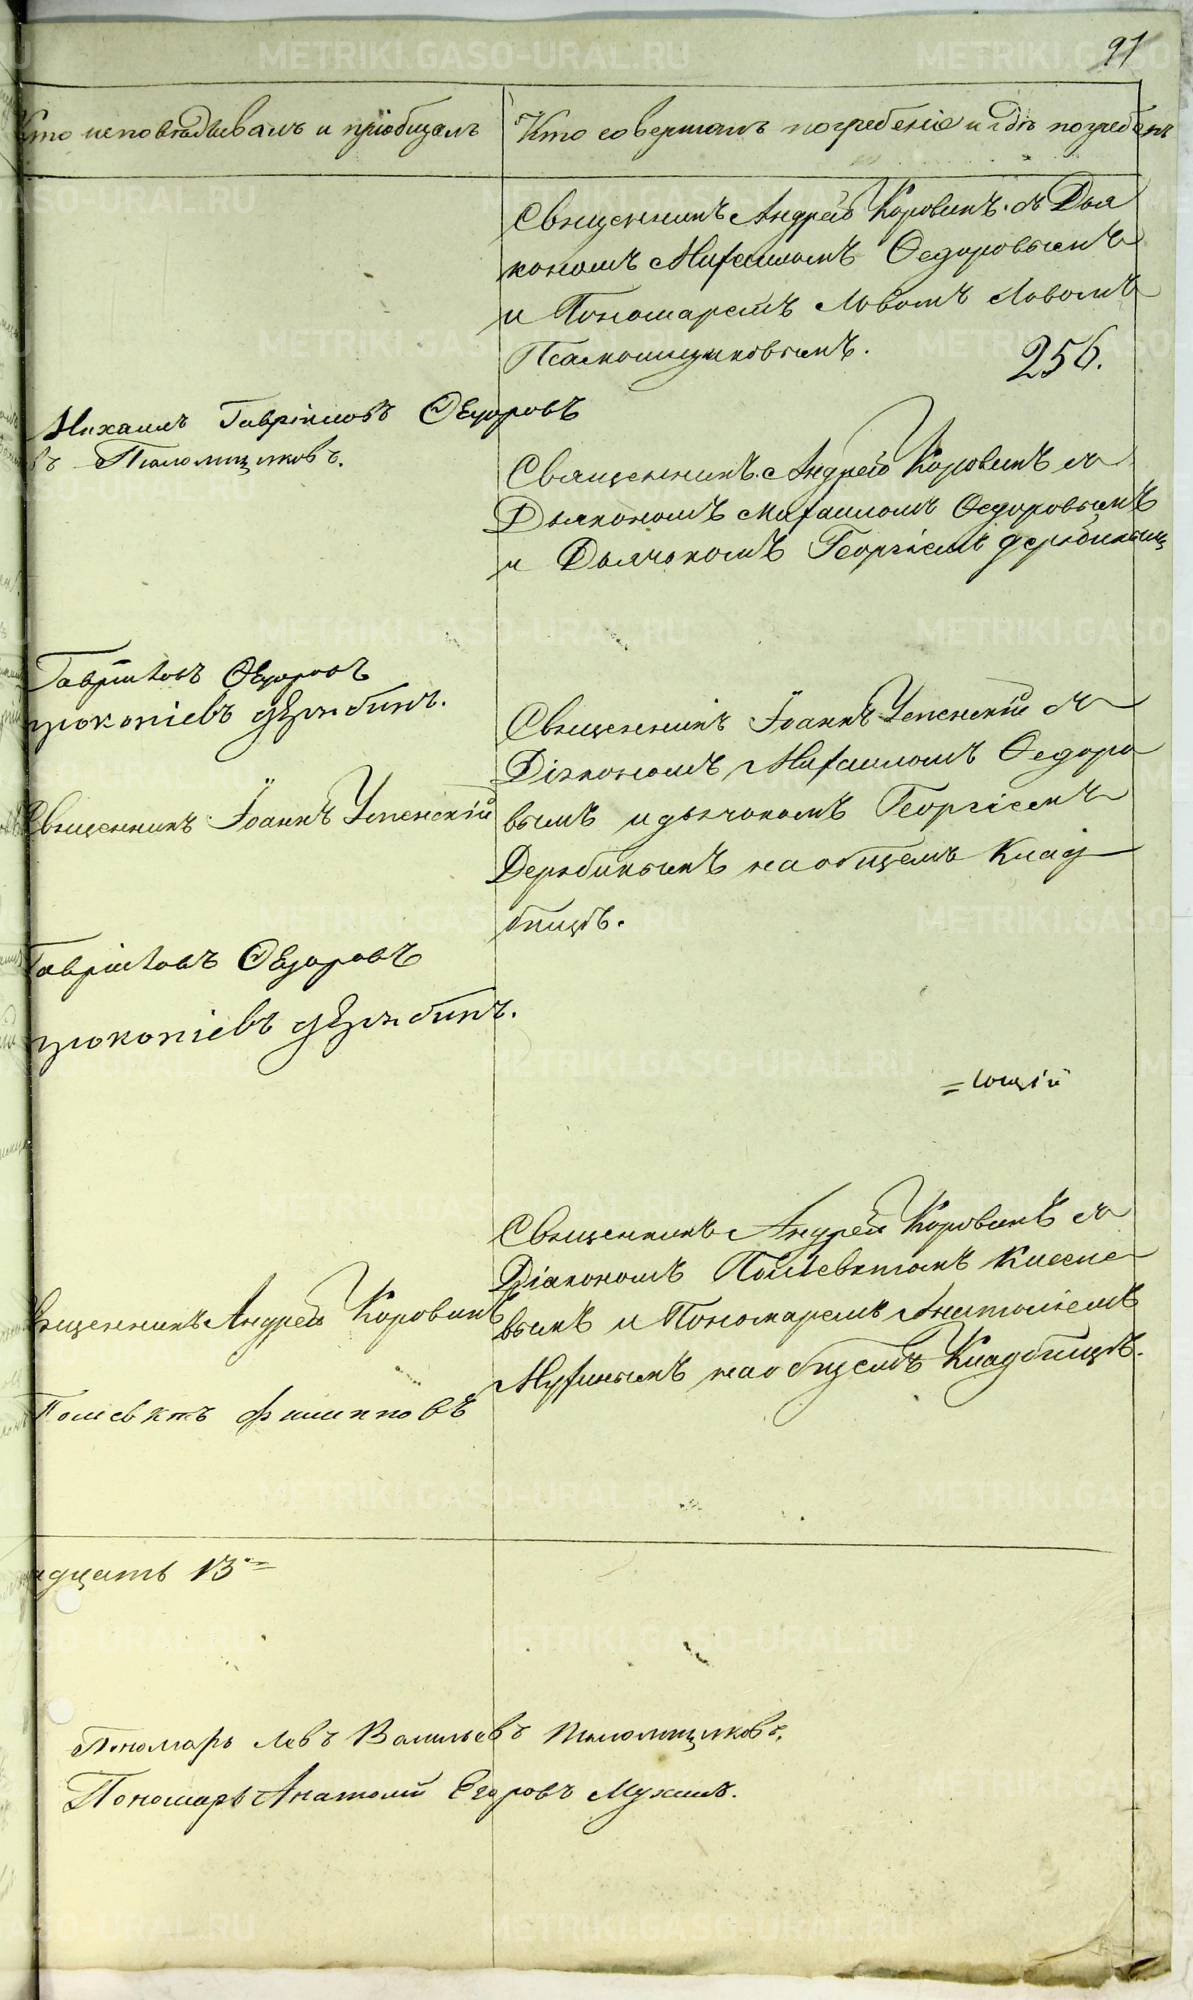 91
Кто исповѣдывалъ и пріобщалъ
Кто совершалъ погребеніе и гдѣ погребенъ
Священникъ Андрей Коровинъ съ Дья
кономъ Михаиломъ Ѳедоровымъ
и Пономаремъ Львомъ
Псаломщиковымъ.
256.
Михаилъ Гавріиловъ Ѳедоровъ
въ Псаломщиковъ.
Священникъ Андрей Коровинъ съ
Дьякономъ Михаиломъ Ѳедоровымъ
и Дьячкомъ Георгіемъ Дерябинымъ
Гавріиловъ Ѳедоровъ
Прокопіевъ Дерябинъ.
Священникъ Іоаннъ Успенскій съ
Діакономъ Михаиломъ Ѳедоро
вымъ и дьячкомъ Георгіемъ
Дерябинымъ на общемъ Клад
бищѣ.
Священникъ Іоаннъ Успенскій
Гавріиловъ Ѳедоровъ
Прокопіевъ Дерябинъ.
=ющій
Священникъ Андрей Коровинъ съ
Діакономъ Поліевктомъ
вымъ и Пономаремъ Анатоліемъ
Мухинымъ на общемъ Кладбищѣ.
Священникъ Андрей Коровинъ
Поліевктъ Филипповъ
адцать 13
Пономарь Левъ Васильевъ Псаломщиковъ.
Пономарь Анатолій Егоровъ Мухинъ.
METRIKI.GASO-URAL.RU